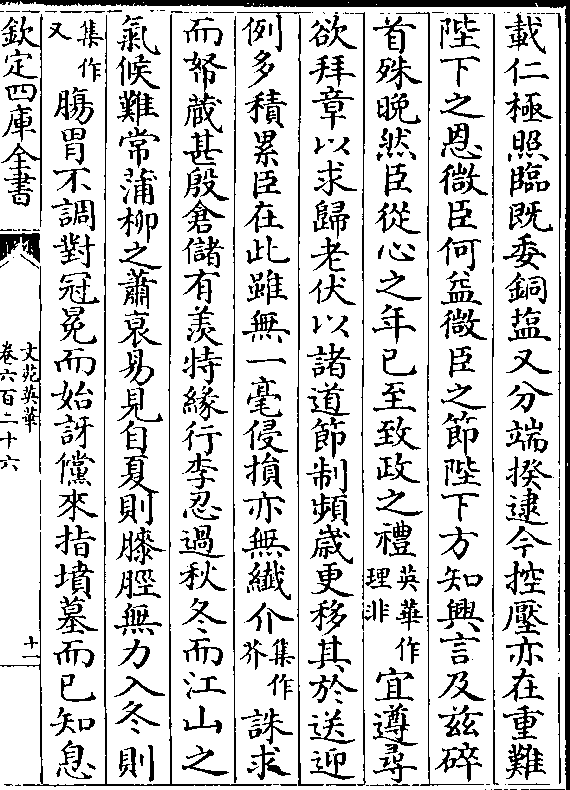 載仁極照臨既委銅塩又分端揆逮今控壓亦在重難
陛下之恩微臣何益微臣之節陛下方知興言及兹碎
首殊晚然臣從心之年已至致政之禮英華作理非宜遵尋
欲拜章以求歸老伏以諸道節制頻歲更移其於送迎
例多積累臣在此雖無一毫侵損亦無纎介集作芥誅求
而帑藏甚殷倉儲有羡特緣行李忍過秋冬而江山之
氣候難常蒲柳之蕭衰易見自夏則膝脛無力入冬則
集作又腸胃不調對冠冕而始訝儻來指墳墓而已知息
欽定四庫全書
文苑英華
卷六百二十六
十一